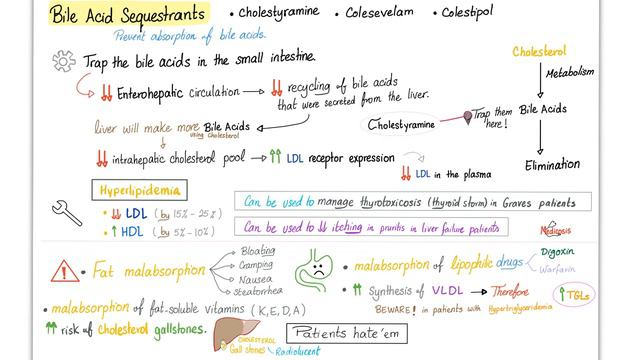 Bile Acid Sequestrants • Cholestyramine • Colesevelam • Colestipol
Prevent absorption of bile acids.
Trap the bile acids in the small intestine.
↓↓ Enterohepatic circulation → ↓↓ recycling of bile acids
that were secreted from the liver.
Cholesterol
Metabolism
Bile Acids
Elimination
Cholestyramine
Trap them
here!
liver will make more Bile Acids
using Cholesterol
↓↓ intrahepatic cholesterol pool → ↑↑ LDL receptor expression
↓↓ LDL in the plasma
Hyperlipidemia
• ↓↓ LDL (by 15% - 25%)
• ↑ HDL (by 5% - 10%)
Can be used to manage thyrotoxicosis (thyroid storm) in Graves patients
Can be used to ↓↓ itching in pruritis in liver failure patients
Medicosis
• Fat malabsorption
Bloating
Cramping
Nausea
Steatorrhea
• malabsorption of lipophilic drugs
Digoxin
Warfarin
• ↑↑ Synthesis of VLDL → Therefore ↑ TGLs
BEWARE! in patients with Hypertriglyceridemia
• malabsorption of fat-soluble vitamins (K, E, D, A)
• ↑↑ risk of cholesterol gallstones.
CHOLESTEROL
Gall stones
Radiolucent
Patients hate 'em